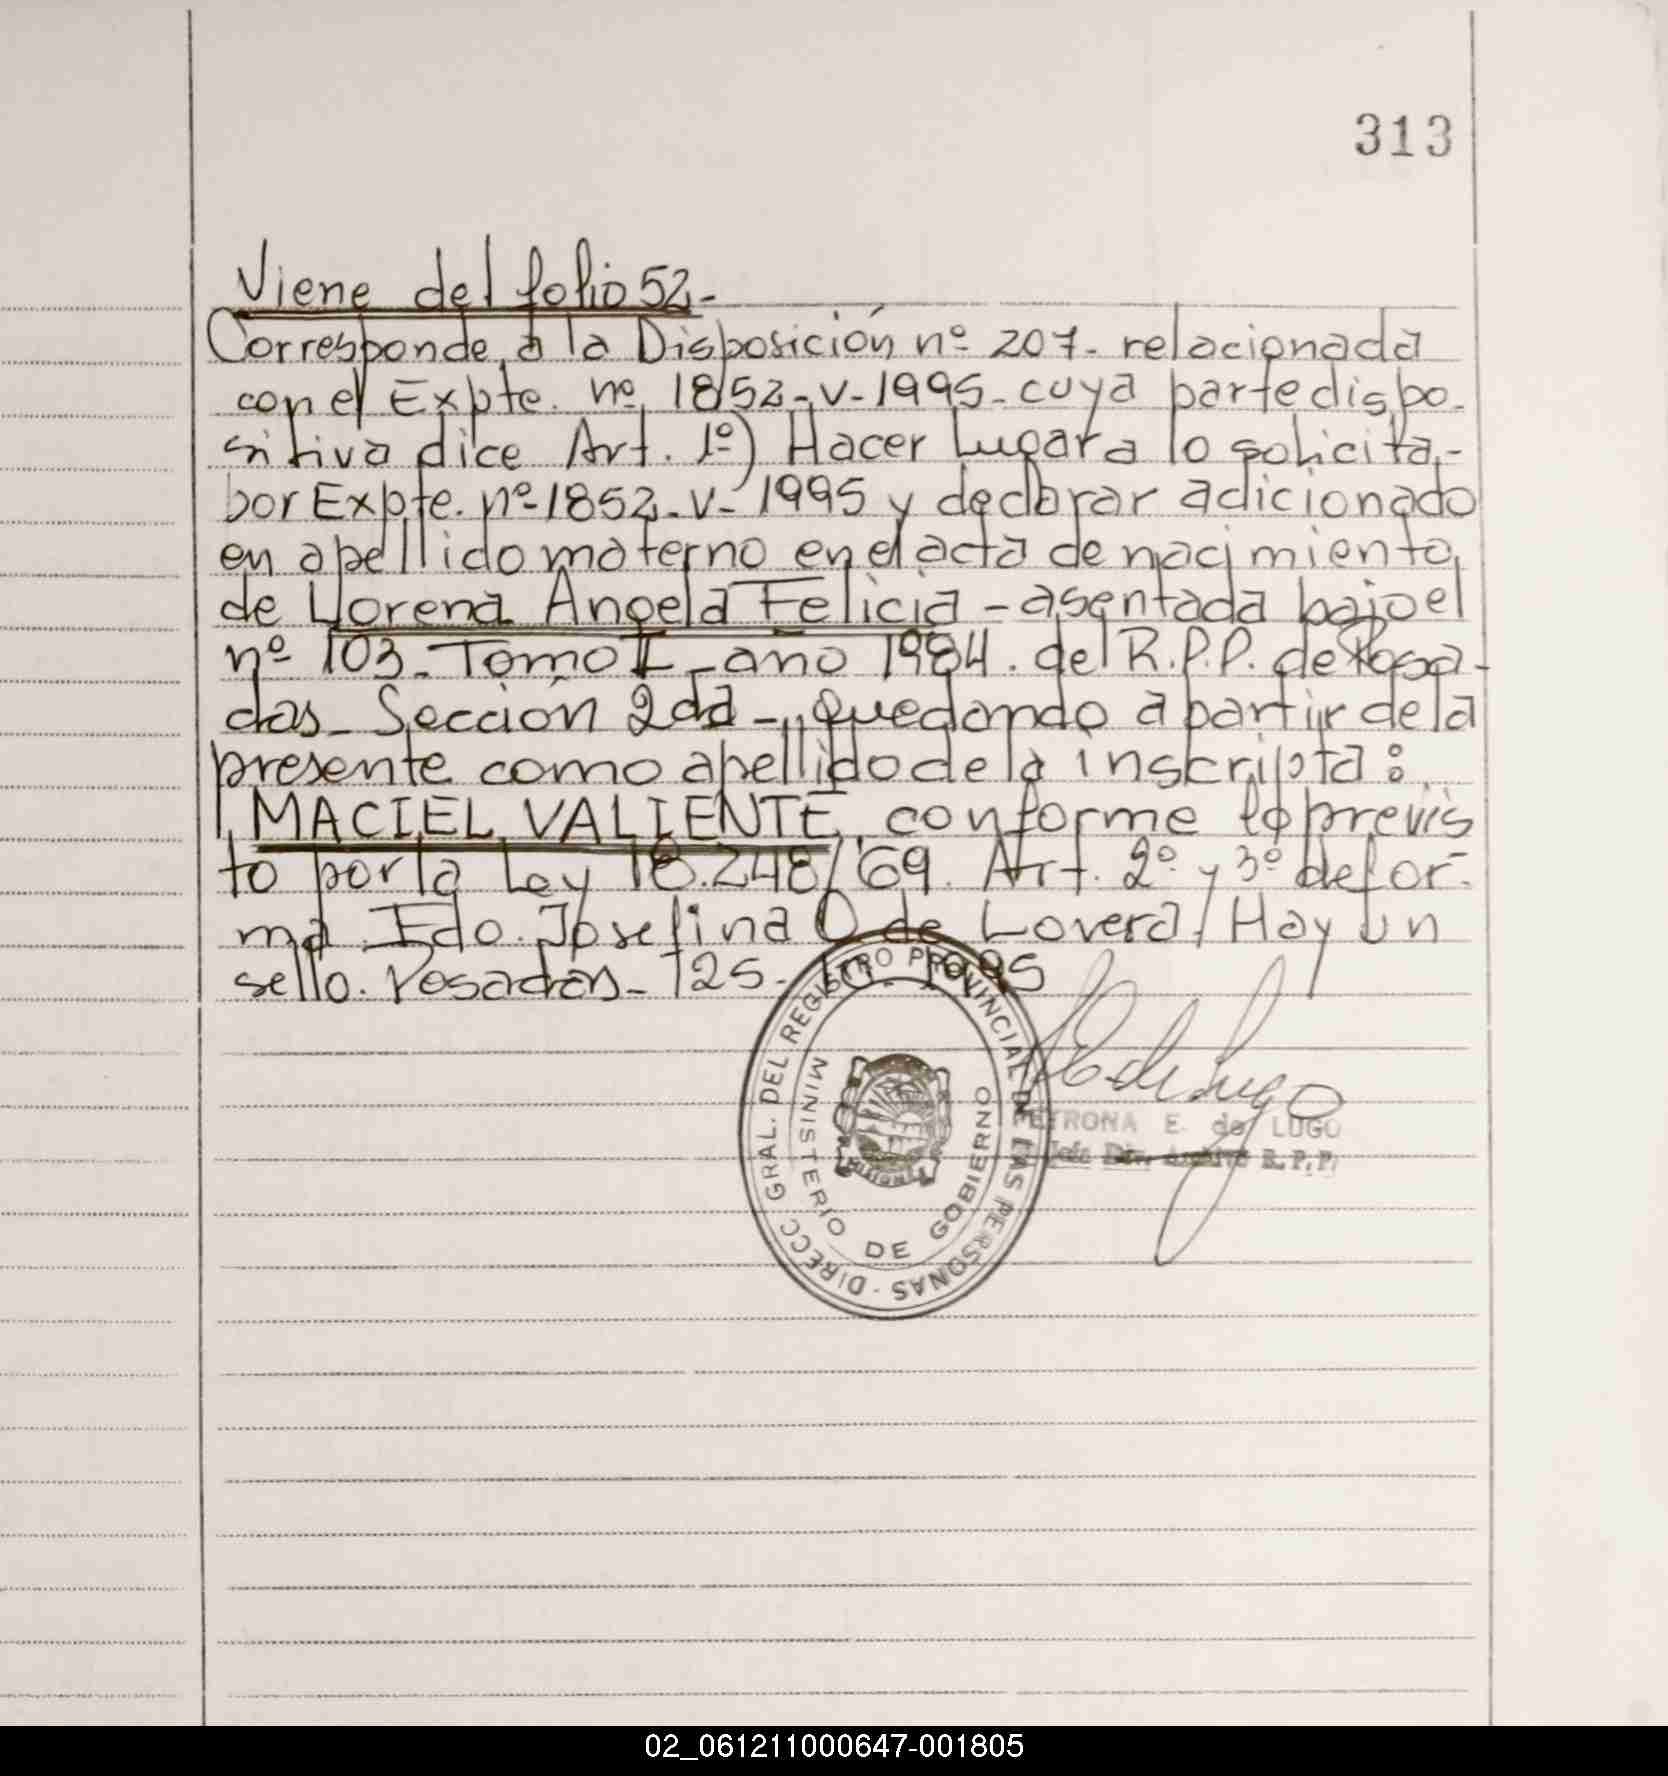 313
Viene del folio 52-
Corresponde a la Disposición nº 207- relacionada
con el Expte. nº 1852-V-1995- cuya parte dispo-
sitiva dice Art. 1º) Hacer Lugar a lo solicita-
por Expte. nº-1852-V-1995 y declarar adicionado
en apellido materno en el acta de nacimiento
de Lorena Angela Felicia - asentada bajo el
nº 103- Tomo I - año 1984. del R.P.P. de Posa-
das- Sección 2da-, quedando a partir de la
presente como apellido de la inscripta:
MACIEL VALIENTE, conforme lo previs
to por la Ley 18.248/69. Art. 2º y 3º de for-
ma. Fdo. Josefina O de Lovera. Hay un
sello. Posadas- 1995
DIRECC GRAL. DEL REGISTRO PROVINCIAL DE LAS PERSONAS -
MINISTERIO DE GOBIERNO
MISIONES
PETRONA E. de LUGO
Jefe Div. Archivo R.P.P.
02_061211000647-001805